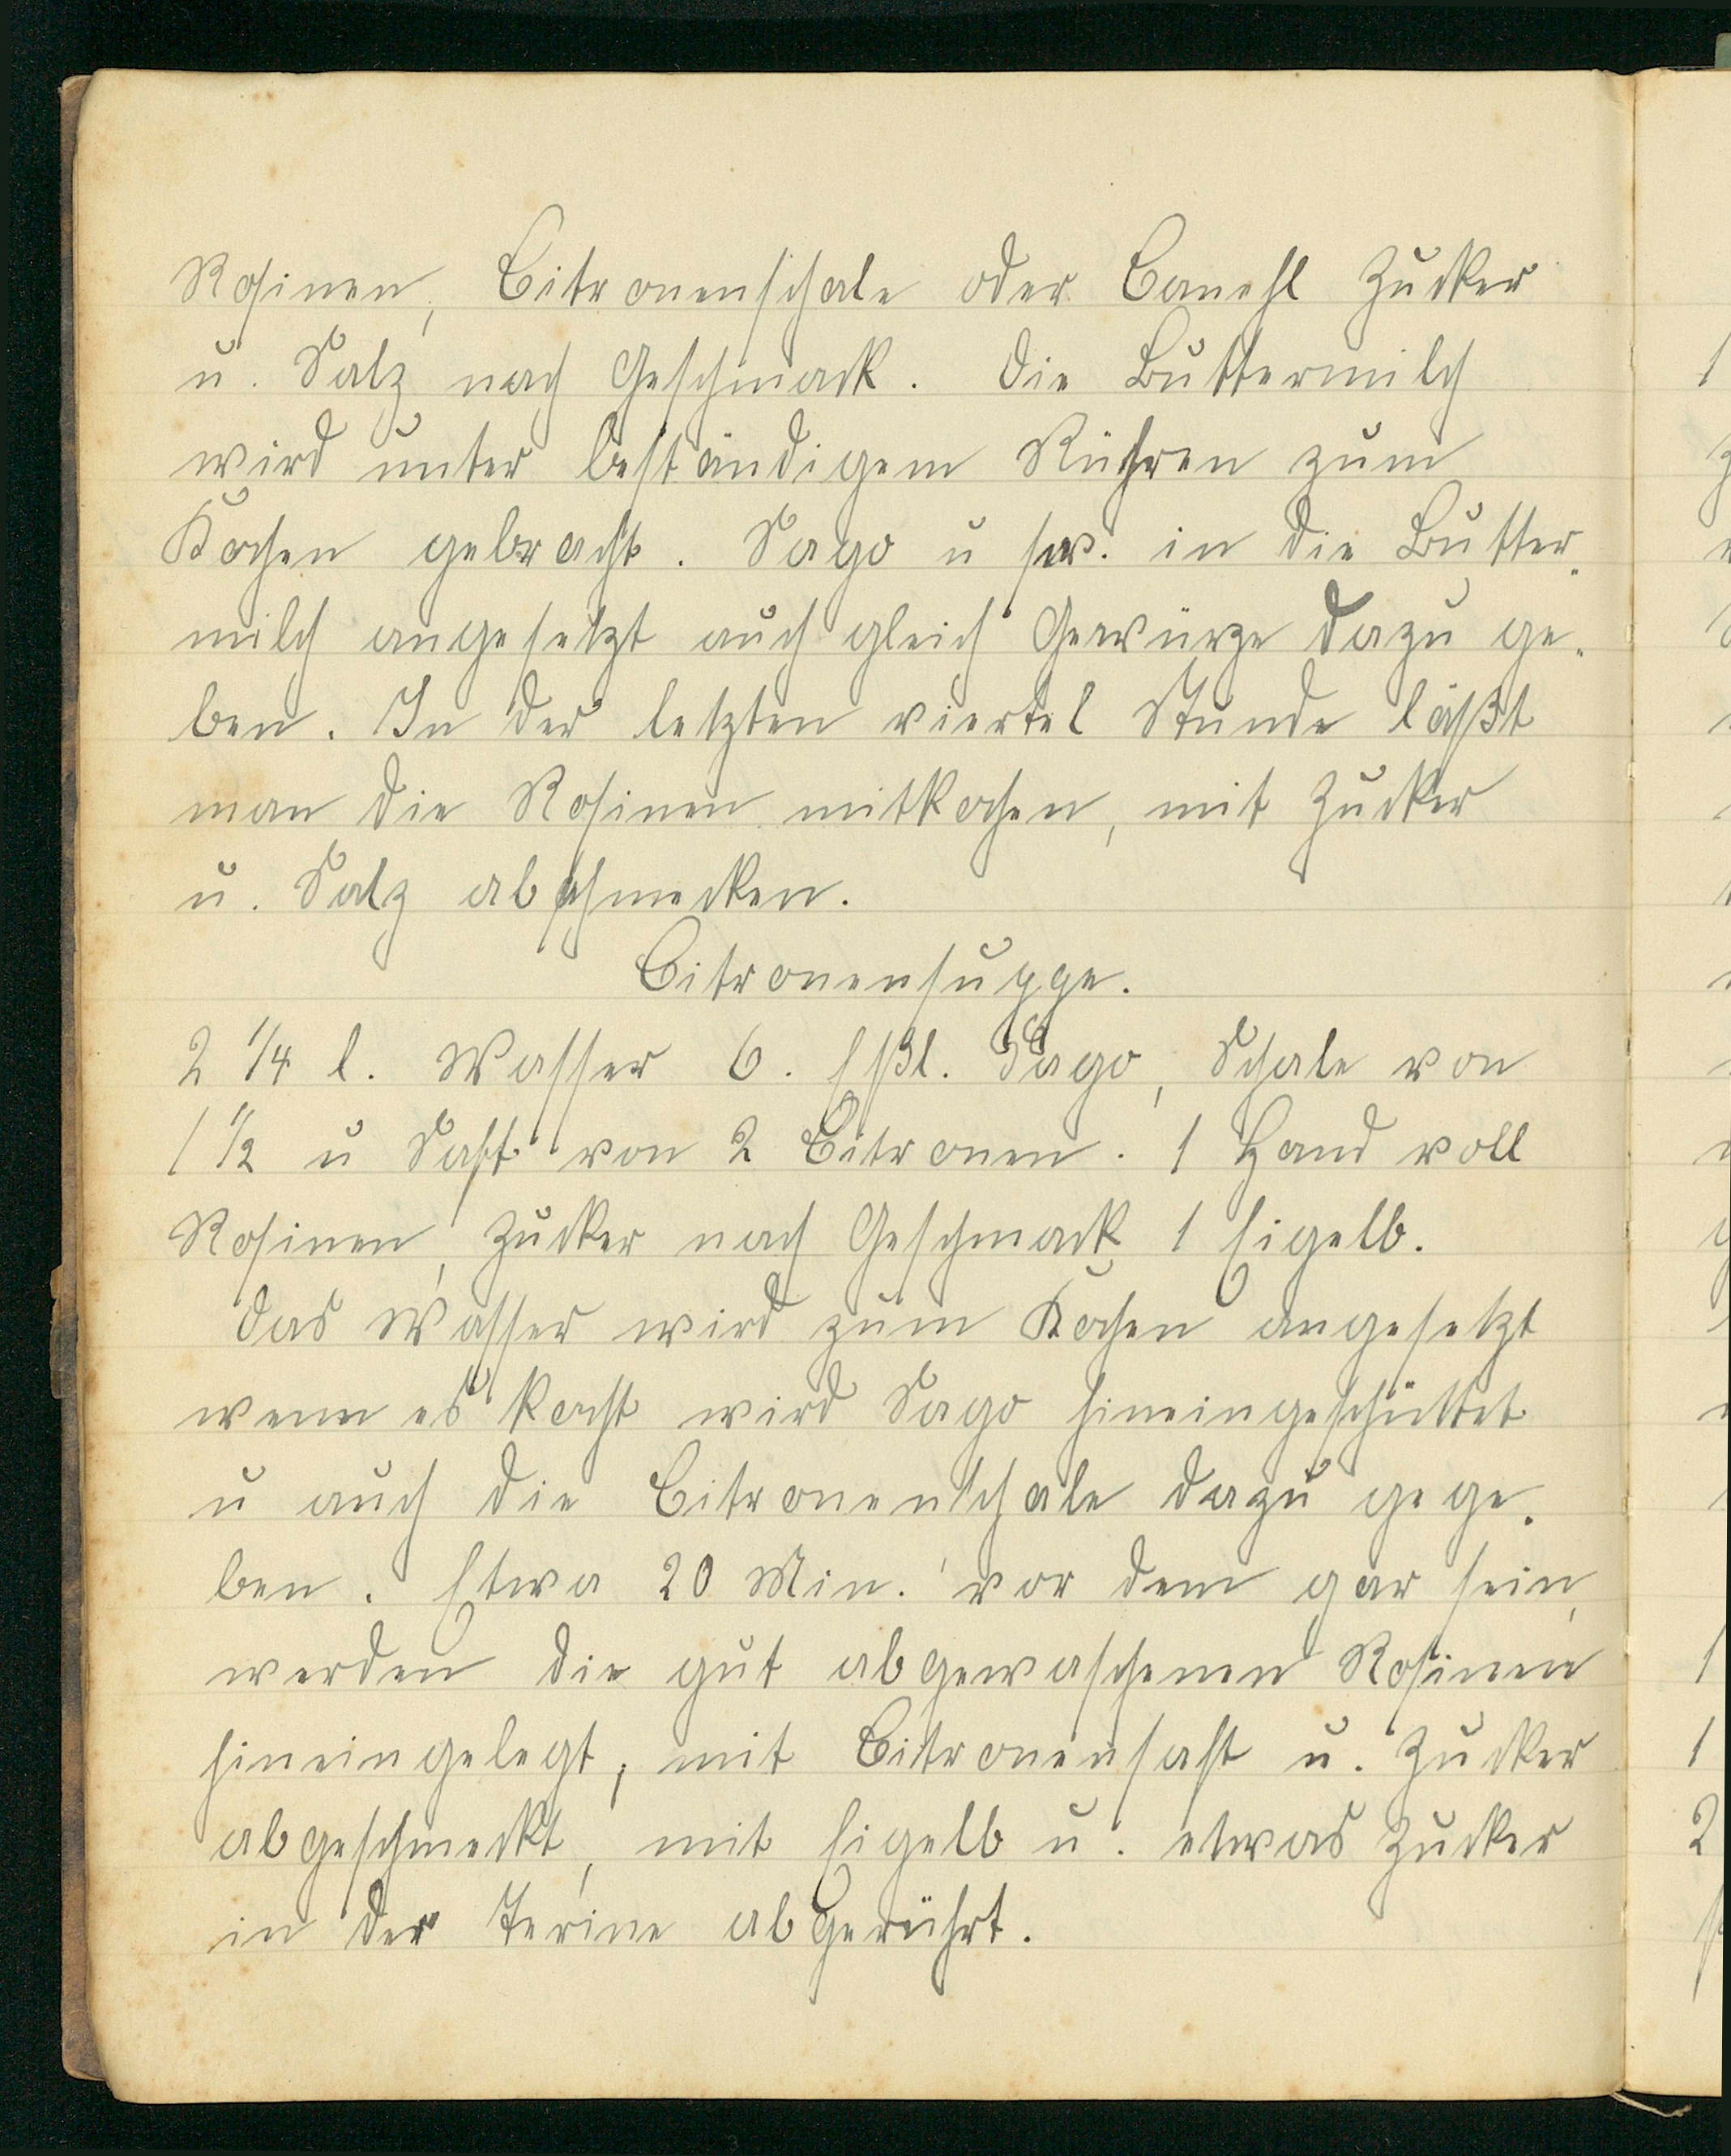 Rosinen, Citronenschale oder Canehl Zucker
u. Salz nach Geschmack. Die Buttermilch
wird unter beständigem Rühren zum
Kochen gebracht. Sago u sw. in die Butter-
milch angesetzt auch gleich Gewürze dazu ge-
ben. In der letzten viertel Stunde läßt
man die Rosinen mitkochen, mit Zucker
u. Salz abschmecken.
Citronensuppe.
2 1/4 l. Wasser 6. Eßl. Sago, Schale von
1 1/2 u Saft von 2 Citronen. 1 Hand voll
Rosinen, Zucker nach Geschmack 1 Eigelb.
Das Wasser wird zum Kochen angesetzt
wenn es kocht wird Sago hineingeschüttet
u auch die Citronenschale dazu gege-
ben. Etwa 20 Min. vor dem gar sein,
werden die gut abgewaschenen Rosinen
hineingelegt, mit Citronensaft u. Zucker
abgeschmeckt, mit Eigelb u. etwas Zucker
in der Terine abgerührt.